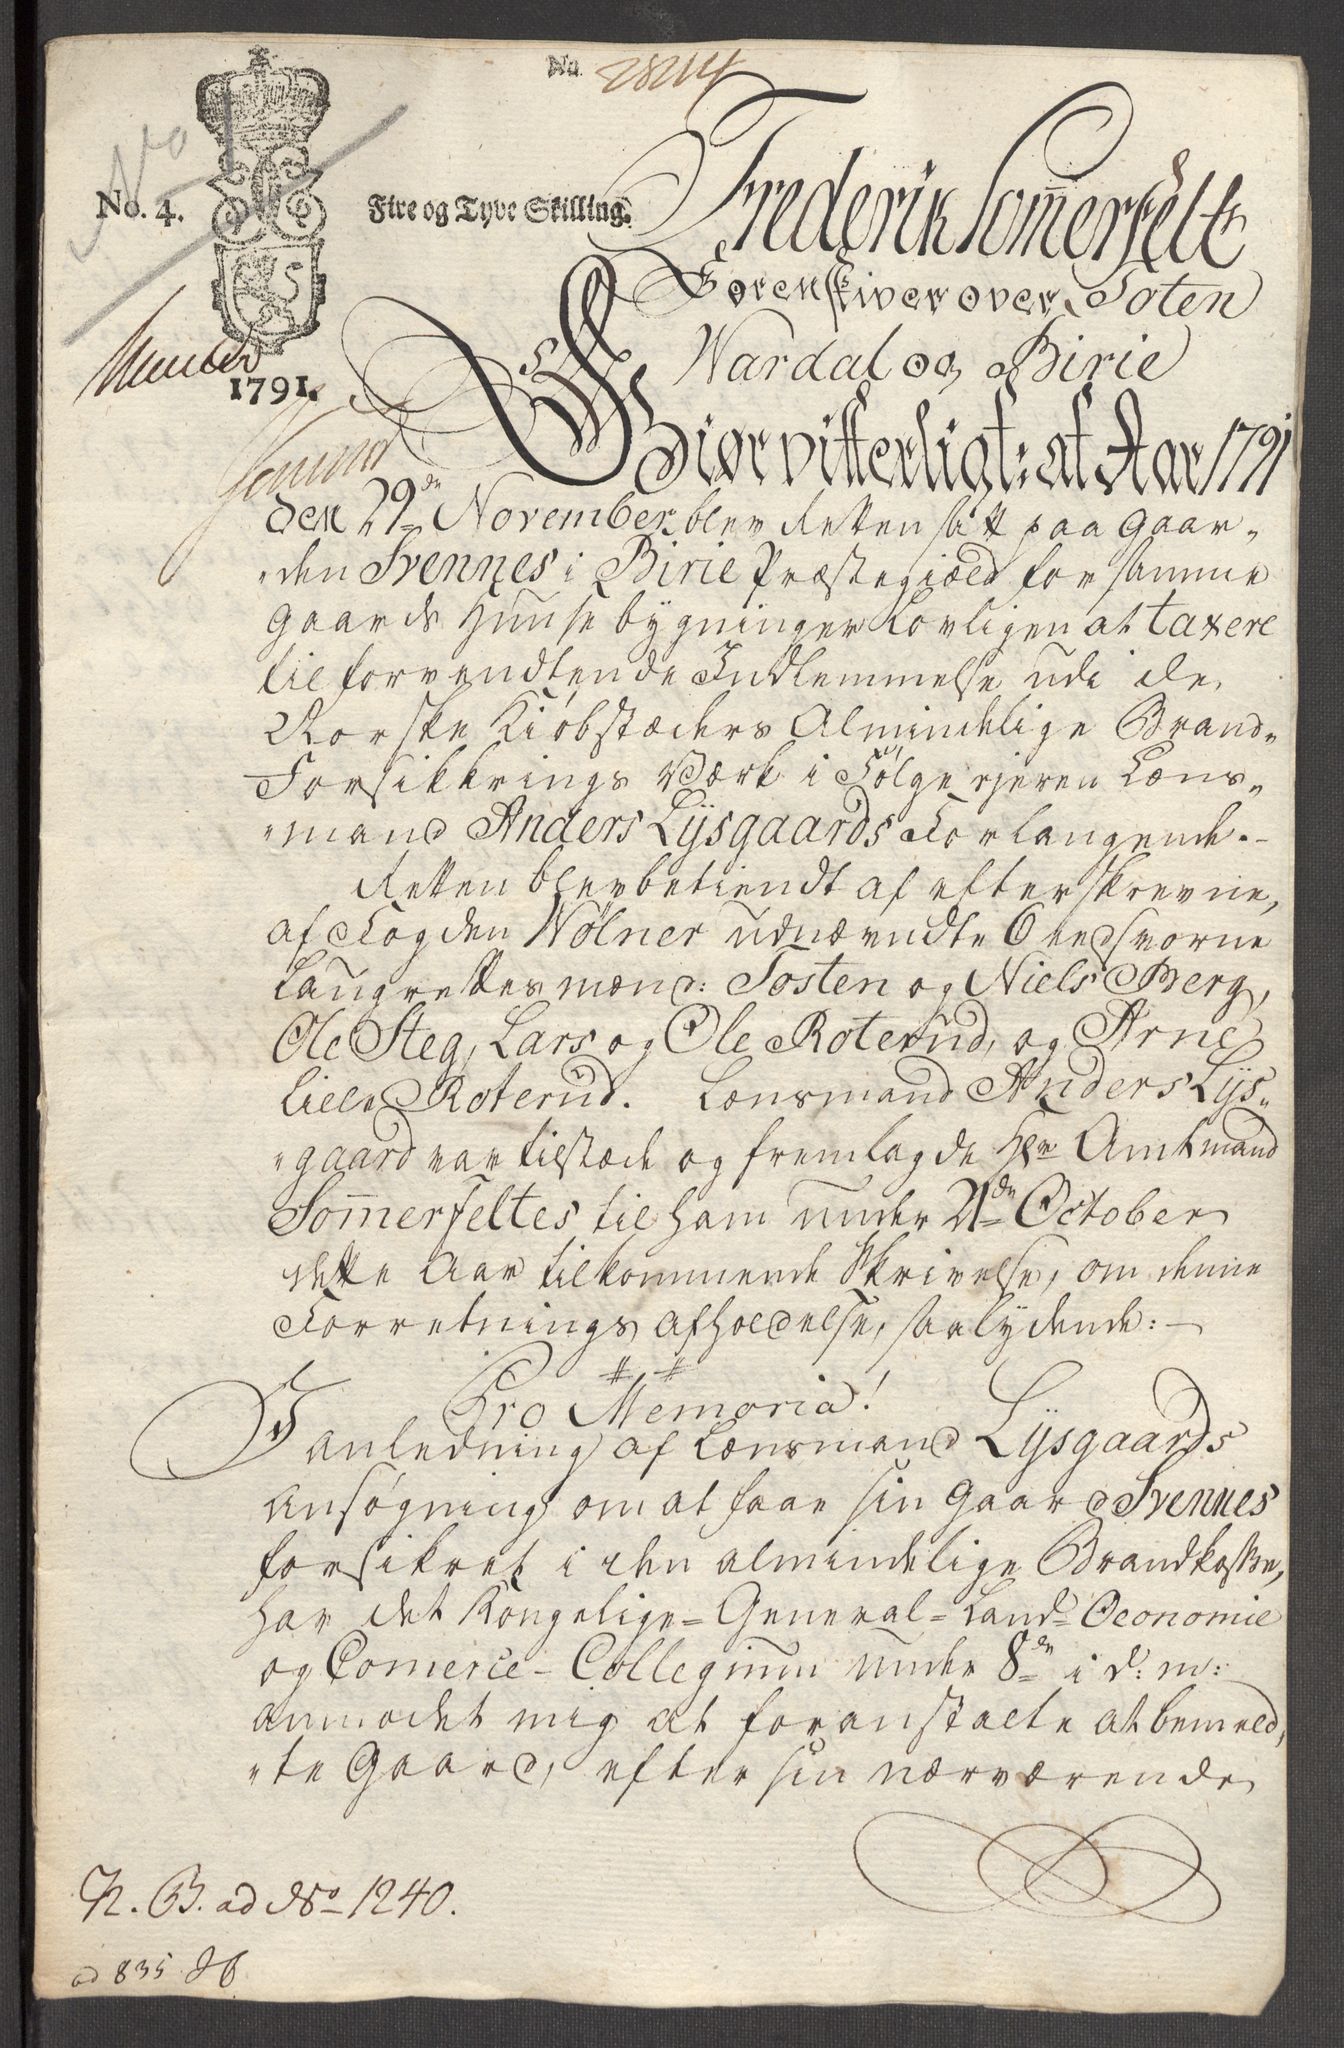 No. 28214
No 1
No. 4.
Fire og Tyve Skilling.
1791.
Frederik Som̅erfelt
Sorenskriver over Toten
Wardal og Birie
Giør vitterligt: at Aar 1791
den 29de November blev Retten satt paa Gaar-
-den Svennes i Birie Præstegiæld for samme
Gaards Huuse bygninger Lovligen at taxere
til forventende Indlemmelse udi de
Norske Kiøbstæders Almindelige Brand-
Forsikkrings Værk i Følge ejeren Læns-
-mand Anders Lÿsgaards Forlangende.-
Retten blev betient af efterskrevne,
af Fogden Wølner udnævndte 6 eedsvorne
Laugrettesmænd: Tosten og Niels Berg,
Ole Steg, Lars og Ole Roterud, og Arne
Lille Roterud. Lænsmand Anders Lÿs-
-gaard var tilstæde og fremlagde Hr Amtmand
Som̅erfeltes til ham under 21de October
dette Aar tilkommende Skrivelse, om denne
Forretnings afholdelse, saalydende:-
Pro Memoria!
I anledning af Lænsmand Lÿsgaards
Ansøgning om at faae sin Gaard Svennes
forsikret i den almindelige Brandkasse,
har det Kongelige=General=Land=Oeconomie
og Comerce-Collegium under 8de i d: m:
anmodet mig at foranstalte at bemeld-
-te Gaard, efter sin nærværende
N. B. ad No 1240.
ad 835